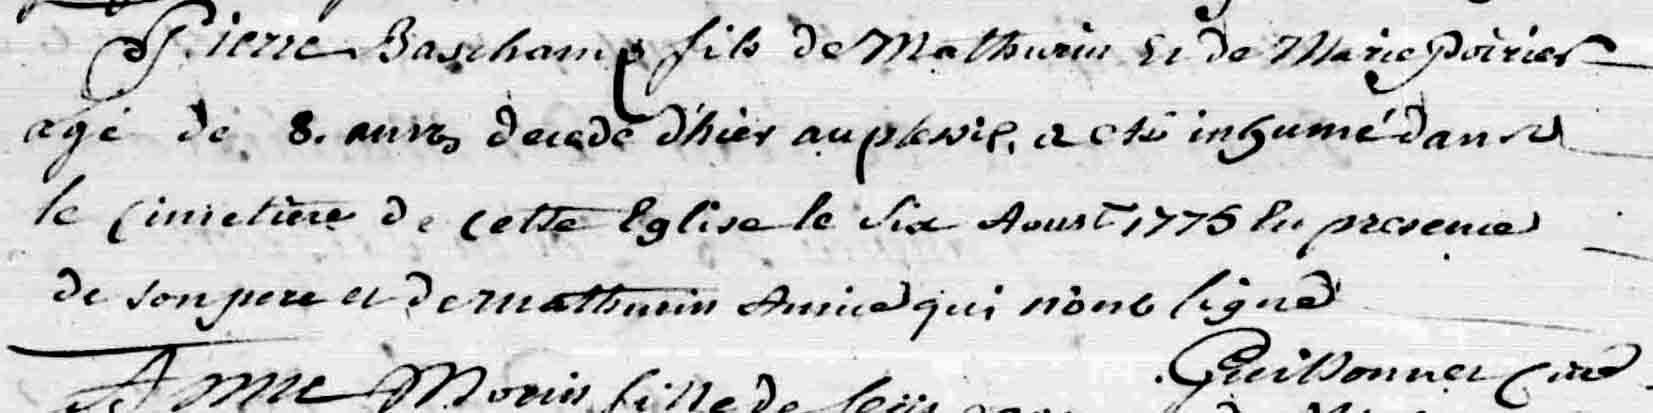 Pierre Baschamp fils de Mathurin Et de Marie Poirier
agé de 8. ans decedé d'hier au plessis, a eté inhumé dans
le Cimetiere de Cette Eglise le six Aoust 1775 En presence
de son pere et de Mathurin qui n'ont signé
Guillonnet Curé
Anne Morin fille de